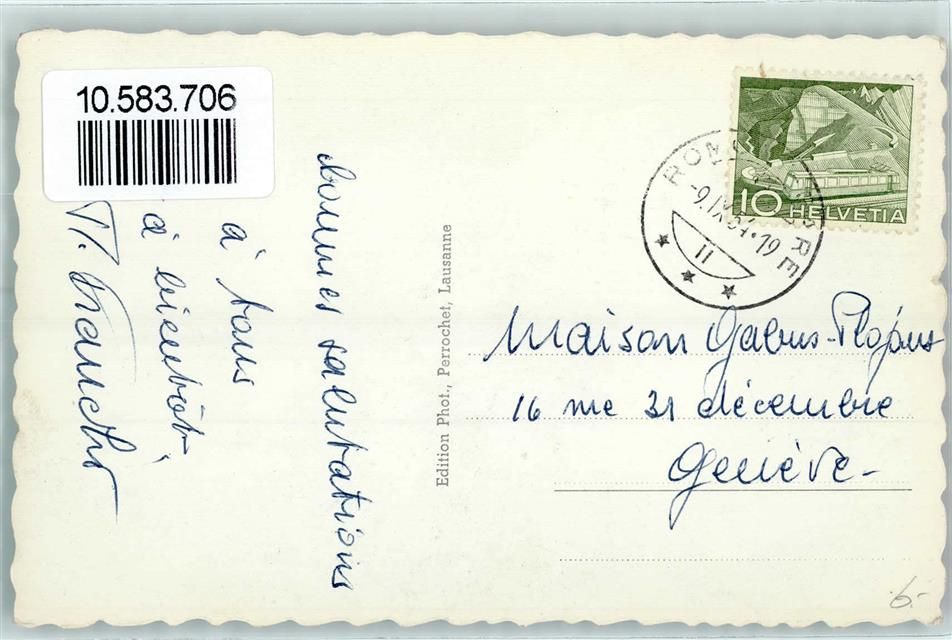 10.583.706
bonnes salutations
à tous
à bientôt,
Edition Phot., Perrochet, Lausanne
10 HELVETIA
-9.IX.54.19
II
Maison Gabus-
16 rue 31 décembre
Genève-
6.-